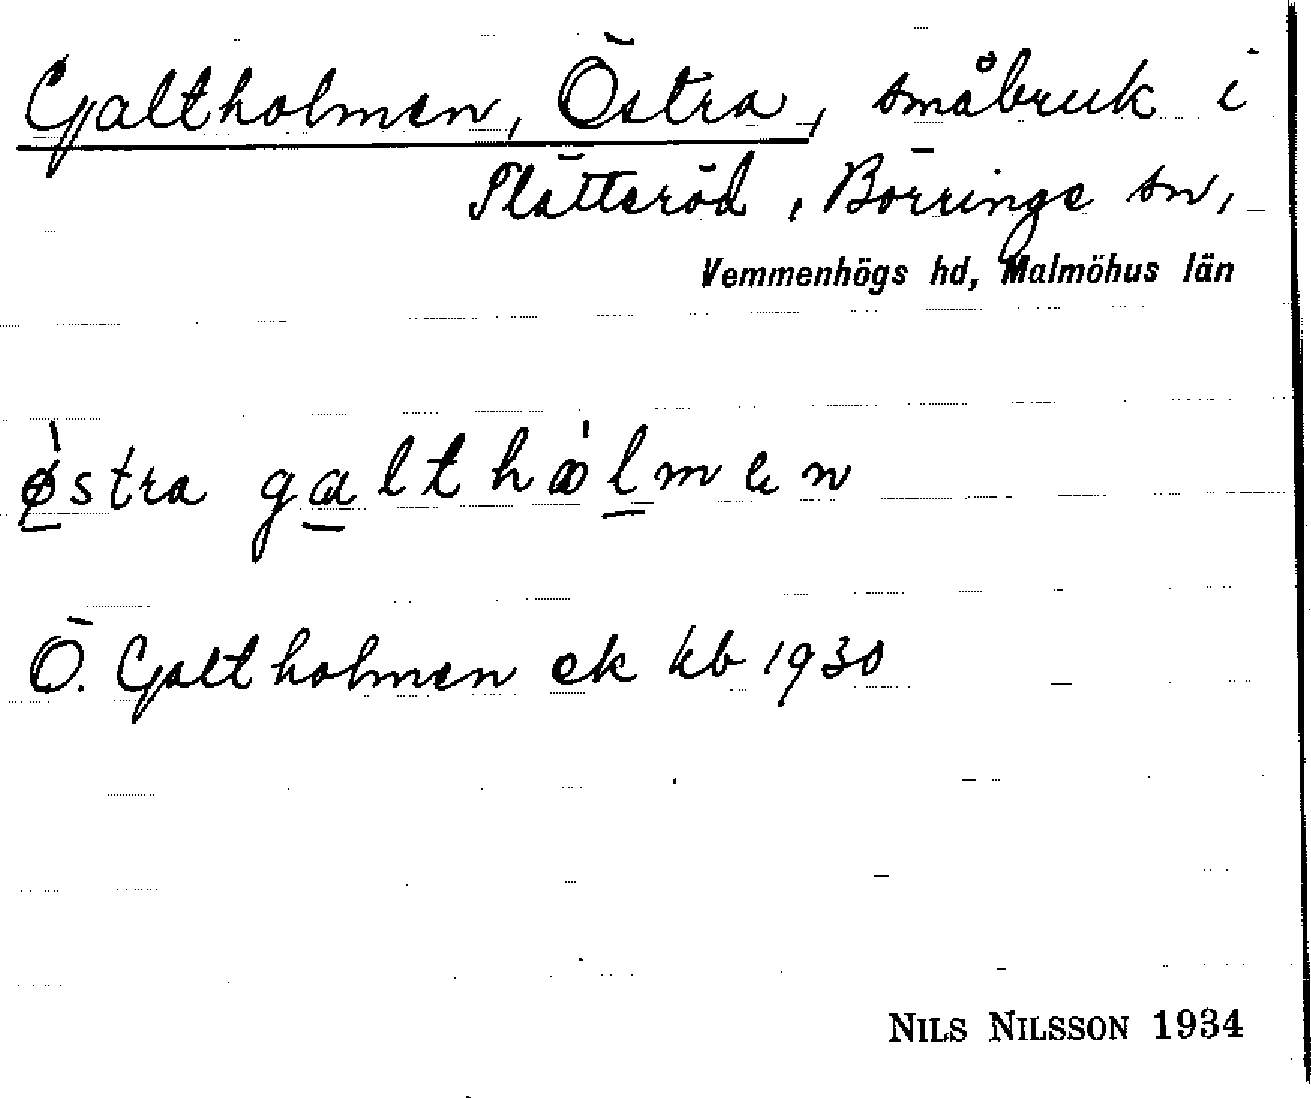 Galtholmen, Östra, småbruk i
Slätteröd, Börringe sn,
Vemmenhögs hd, Malmöhus län
østra galthålmen
Ö. Galtholmen ek kb 1930
NILS NILSSON 1934